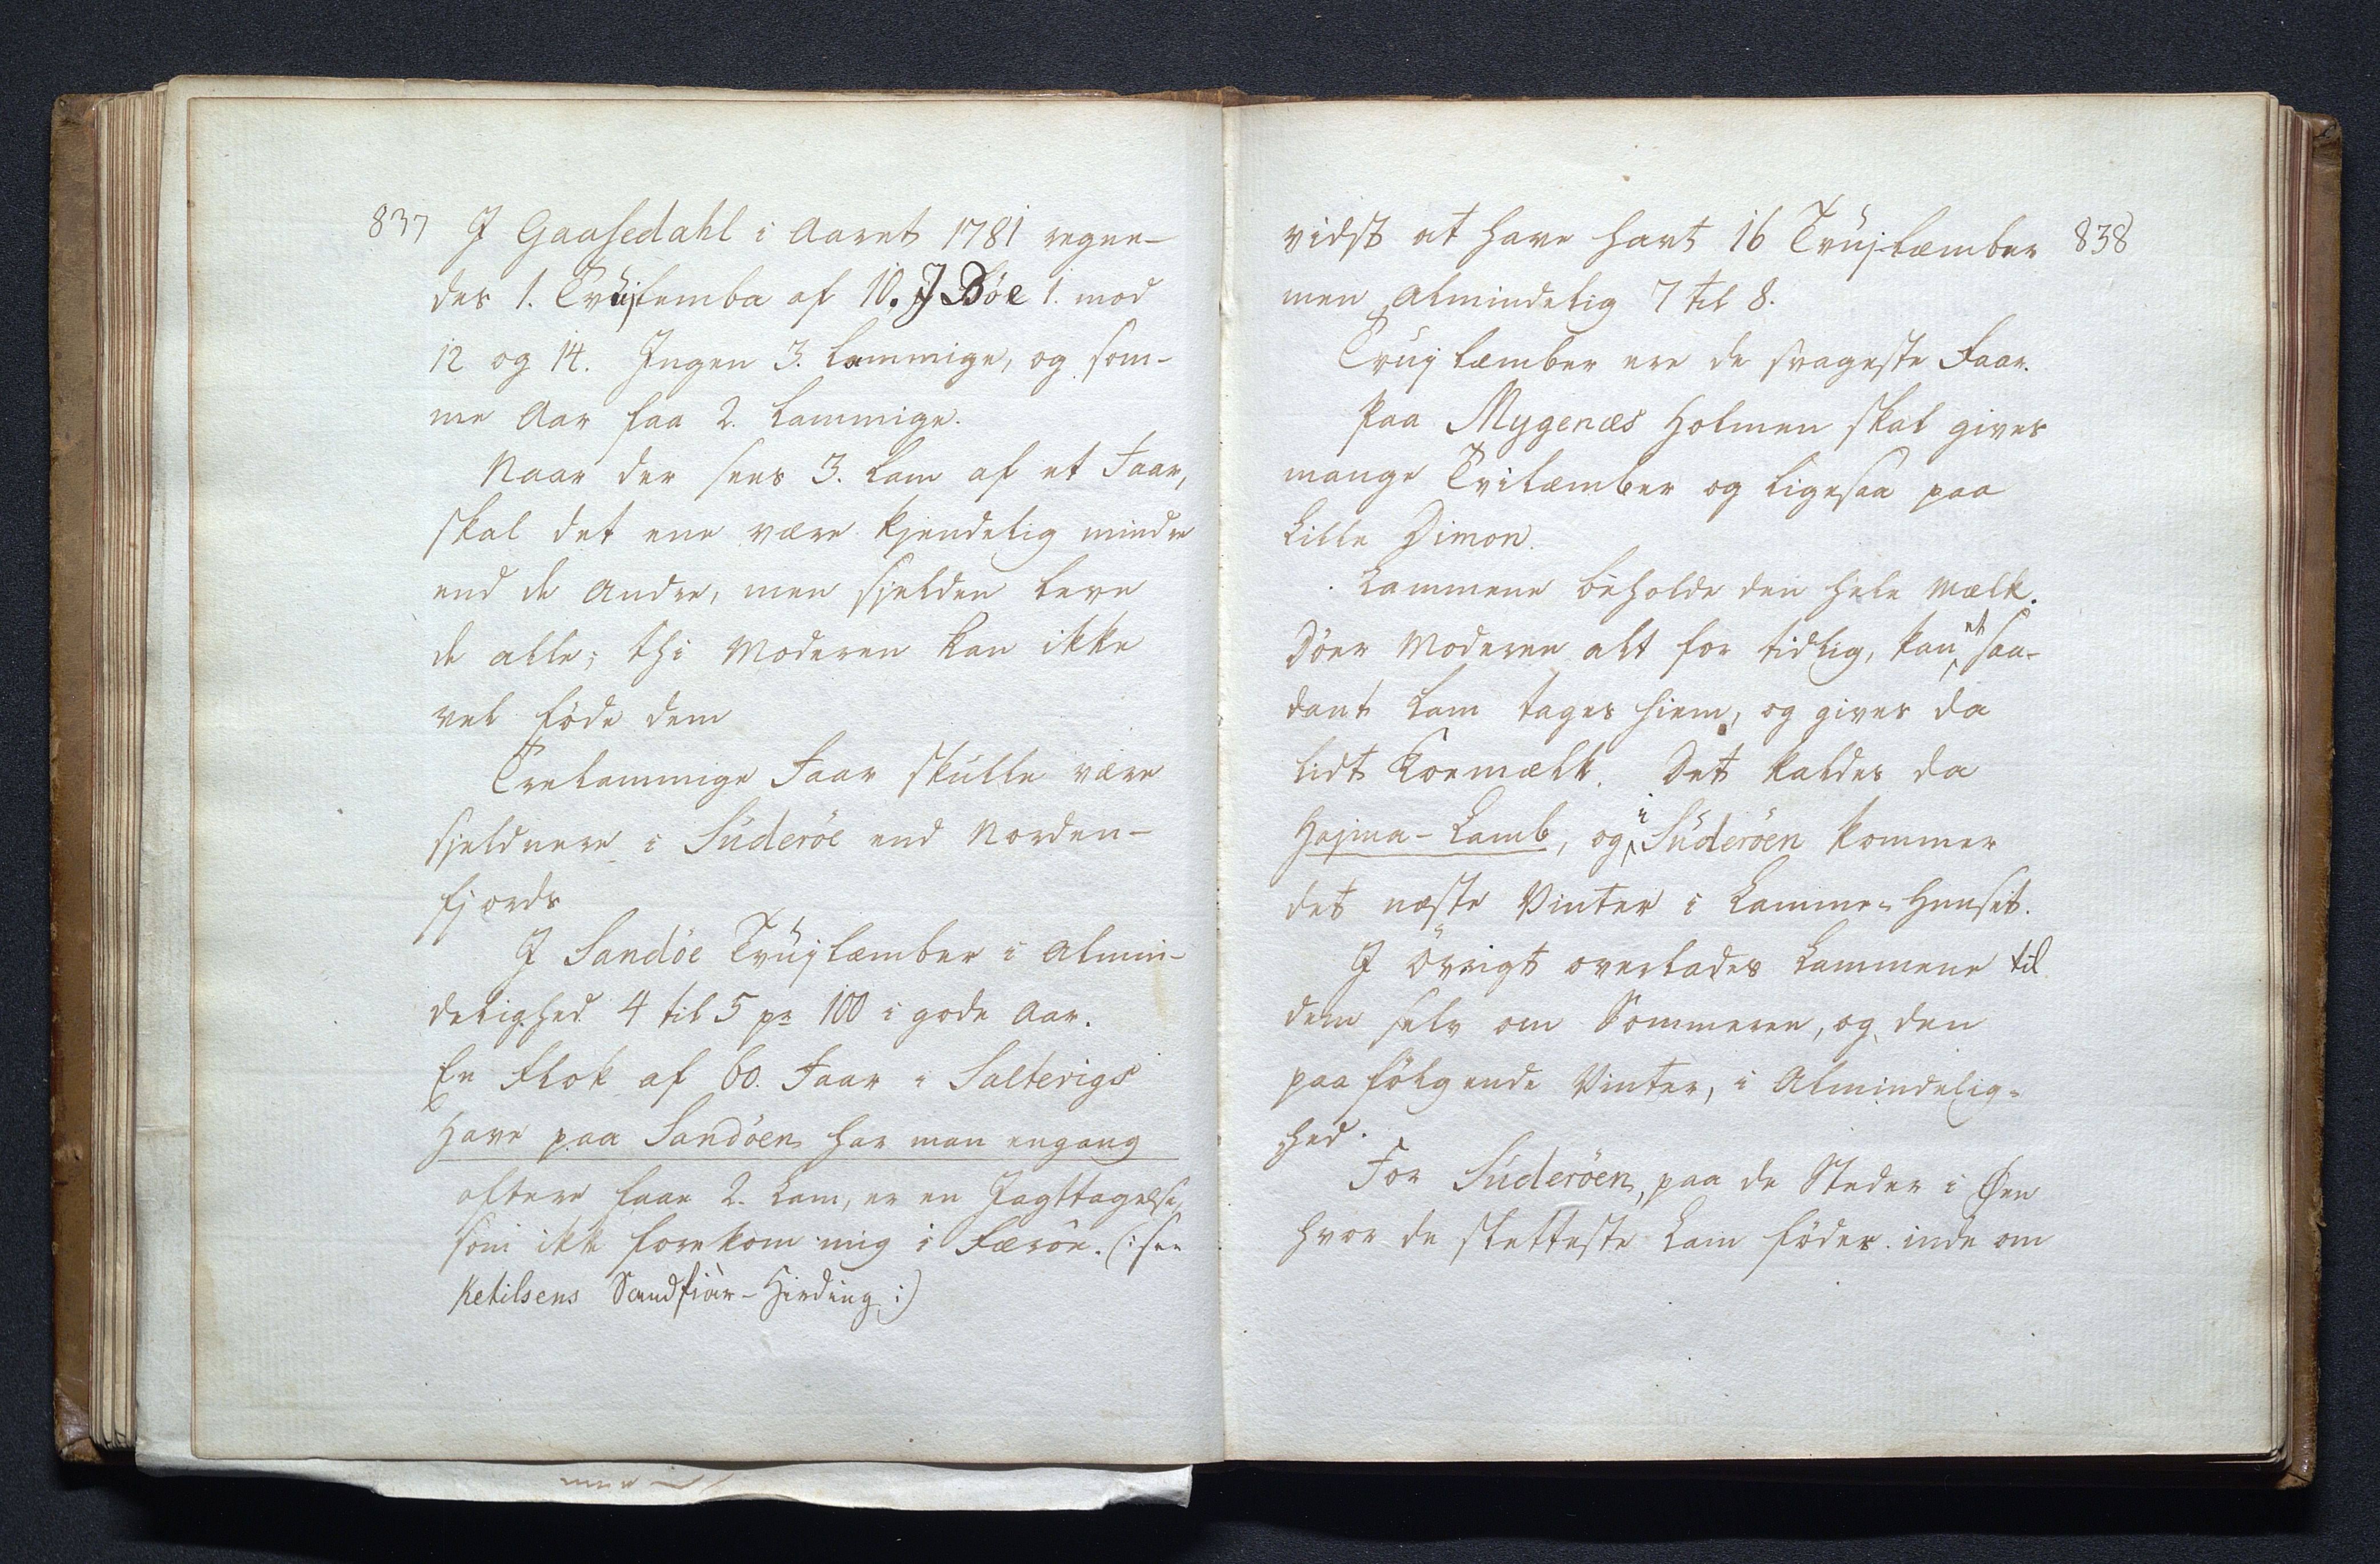 837
I Gaasedahl i Aaret 1781 regne-
des 1. Trûjlemba af 10. I Bøe 1. mod
12 og 14. Ingen 3. lammige, og som-
me Aar faa 2. Lammige.
Naar der sees 3. Lam af et Faar,
skal det ene være kjendelig mindre
end de Andre, men sjelden leve
de alle; thi Moderen kan ikke
vel föde dem
Trelammige Faar skulle være
sjeldnere i Suderöe end Norden-
fjords
I Sandöe Trüjlæmber i Almin-
delighed 4 til 5 pr 100 i gode Aar.
En Flok af 60. Faar i Salterigs
Have paa Sandöen har man engang
oftere faae 2. Lam, er en Jagttagelse,
som ikke forekom mig i Færöe. (: see
Ketilsens Saudfiàr-Hirding :)
838
vidst at have havt 16 Trüjlæmber
men Almindelig 7 til 8.
Trüjlæmber ere de svageste Faar.
Paa Mygenæs Holmen skal gives
mange Tvilæmber og ligesaa paa
Lille Dimon.
Lammene beholde den hele Mælk.
Döer Moderen alt for tidlig, kan et saa-
dant Lam tages hiem, og gives da
lidt Koemælk. Det kaldes da
Hejma-Lamb, og i Suderöen kommer
det næste Vinter i Lamme-Huuset.
I Övrigt overlades Lammene til
dem selv om Sommeren, og den
paafölgende Vinter, i Almindelig-
hed.
For Suderöen, paa de Steder i Øen
hvor de sletteste Lam födes inde om